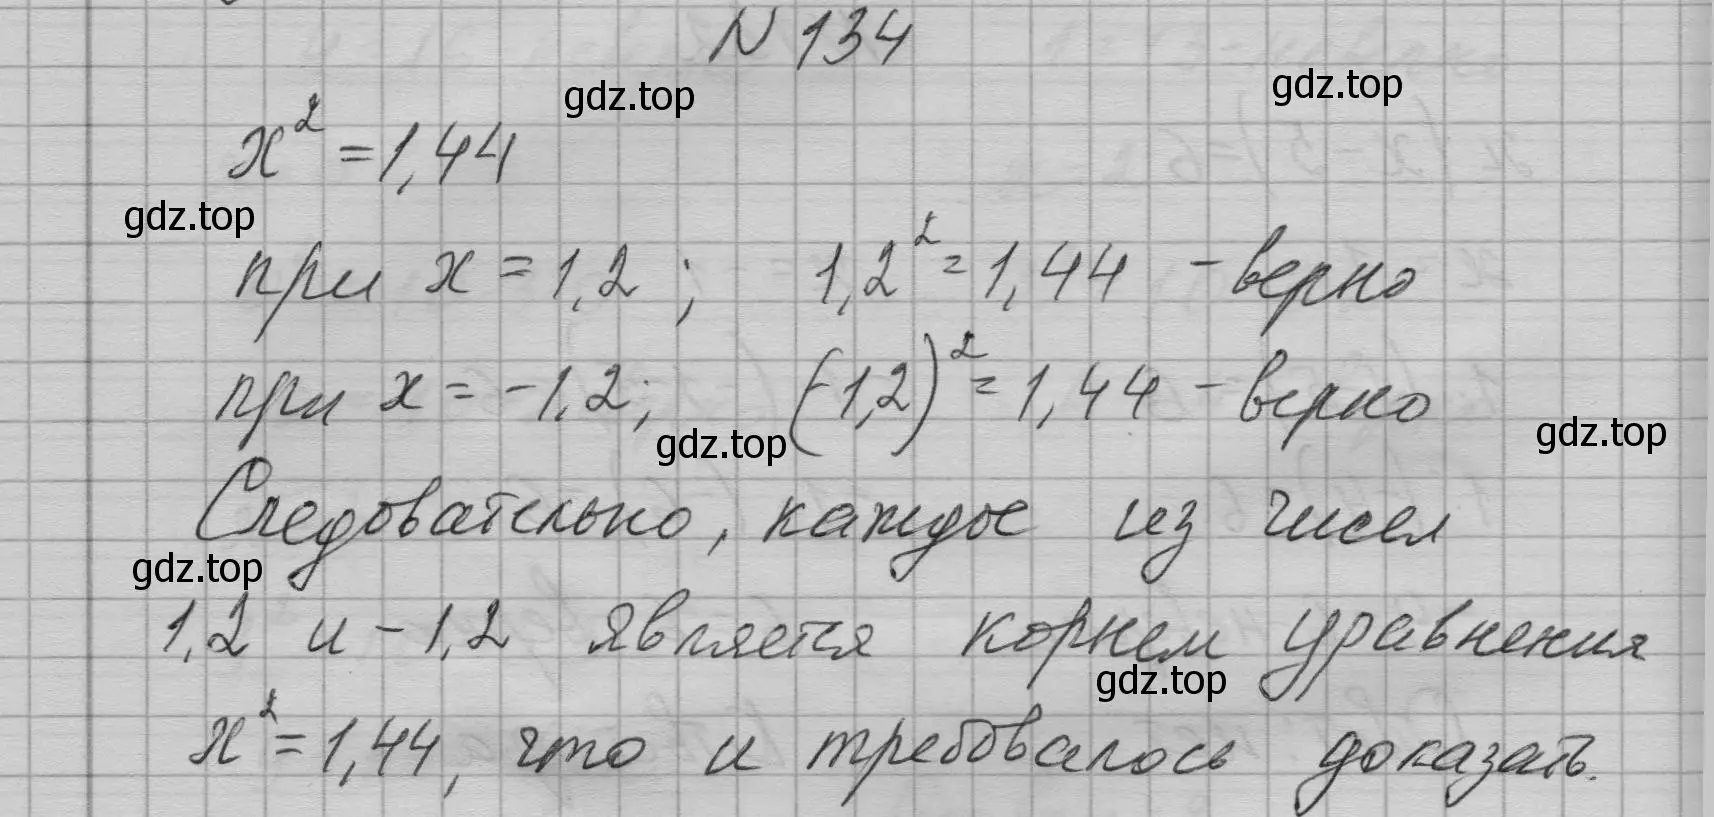 N 134
gdz.top
gdz.top
x² = 1,44
gdz.top
при x = 1,2 ; 1,2² = 1,44 - верно
при x = -1,2; (-1,2)² = 1,44 - верно
gdz.top
gdz.top
Следовательно, каждое из чисел
gdz.top
1,2 и -1,2 является корнем уравнения
gdz.top
x² = 1,44, что и требовалось доказать.